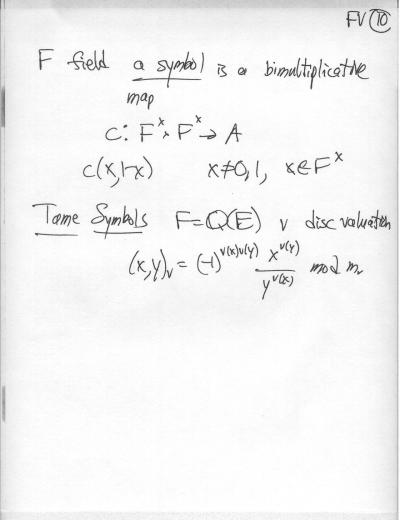 FV 10
F field a symbol is a bimultiplicative
map
c: F^× × F^× → A
c(x, 1-x) x≠0,1, x∈F^×
Tame Symbols F=Q(E) v disc valuation
(x,y)_v = (-1)^{v(x)v(y)} x^{v(y)} / y^{v(x)} mod m_v